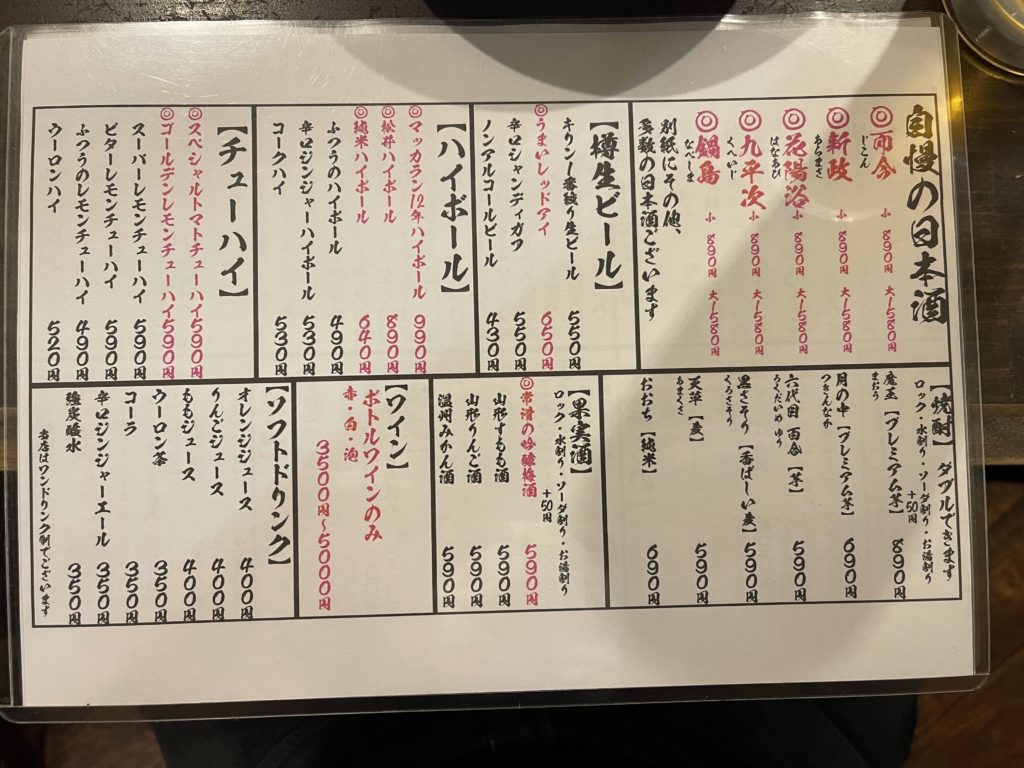 自慢の日本酒
◎而今 小 890円 大 1580円
じこん
◎新政 小 890円 大 1580円
あらまさ
◎花陽浴 小 890円 大 1580円
はなあび
◎九平次 小 890円 大 1580円
くへいじ
◎鍋島 小 890円 大 1580円
なべしま
別紙にその他、
多数の日本酒ございます
【樽生ビール】
キリン一番搾り生ビール 550円
◎うまいレッドアイ 650円
辛口シャンディガフ 550円
ノンアルコールビール 430円
【ハイボール】
◎マッカラン12年ハイボール 990円
◎松井ハイボール 890円
◎純米ハイボール 640円
ふつうのハイボール 490円
辛口ジンジャーハイボール 530円
コークハイ 530円
【チューハイ】
◎スペシャルトマトチューハイ 590円
◎ゴールデンレモンチューハイ 590円
スーパーレモンチューハイ 590円
ビターレモンチューハイ 590円
ふつうのレモンチューハイ 490円
ウーロンハイ 520円
【焼酎】ダブルできます
ロック・水割り・ソーダ割り・お湯割り
+50円
魔王【プレミアム芋】 890円
まおう
月の中【プレミアム芋】 690円
つきんなか
六代目 百合【芋】 590円
ろくだいめ ゆり
黒さそり【香ばしい麦】 590円
くろさそり
天草【麦】 590円
あまくさ
おおち【純米】 690円
【果実酒】
ロック・水割り・ソーダ割り・お湯割り
+50円
◎常滑の吟醸梅酒 590円
山形すもも酒 590円
山形りんご酒 590円
温州みかん酒 590円
【ワイン】
ボトルワインのみ
赤・白・泡
3500円〜5000円
【ソフトドリンク】
オレンジジュース 400円
りんごジュース 400円
ももジュース 400円
ウーロン茶 350円
コーラ 350円
辛口ジンジャーエール 350円
強炭酸水 350円
当店はワンドリンク制でございます